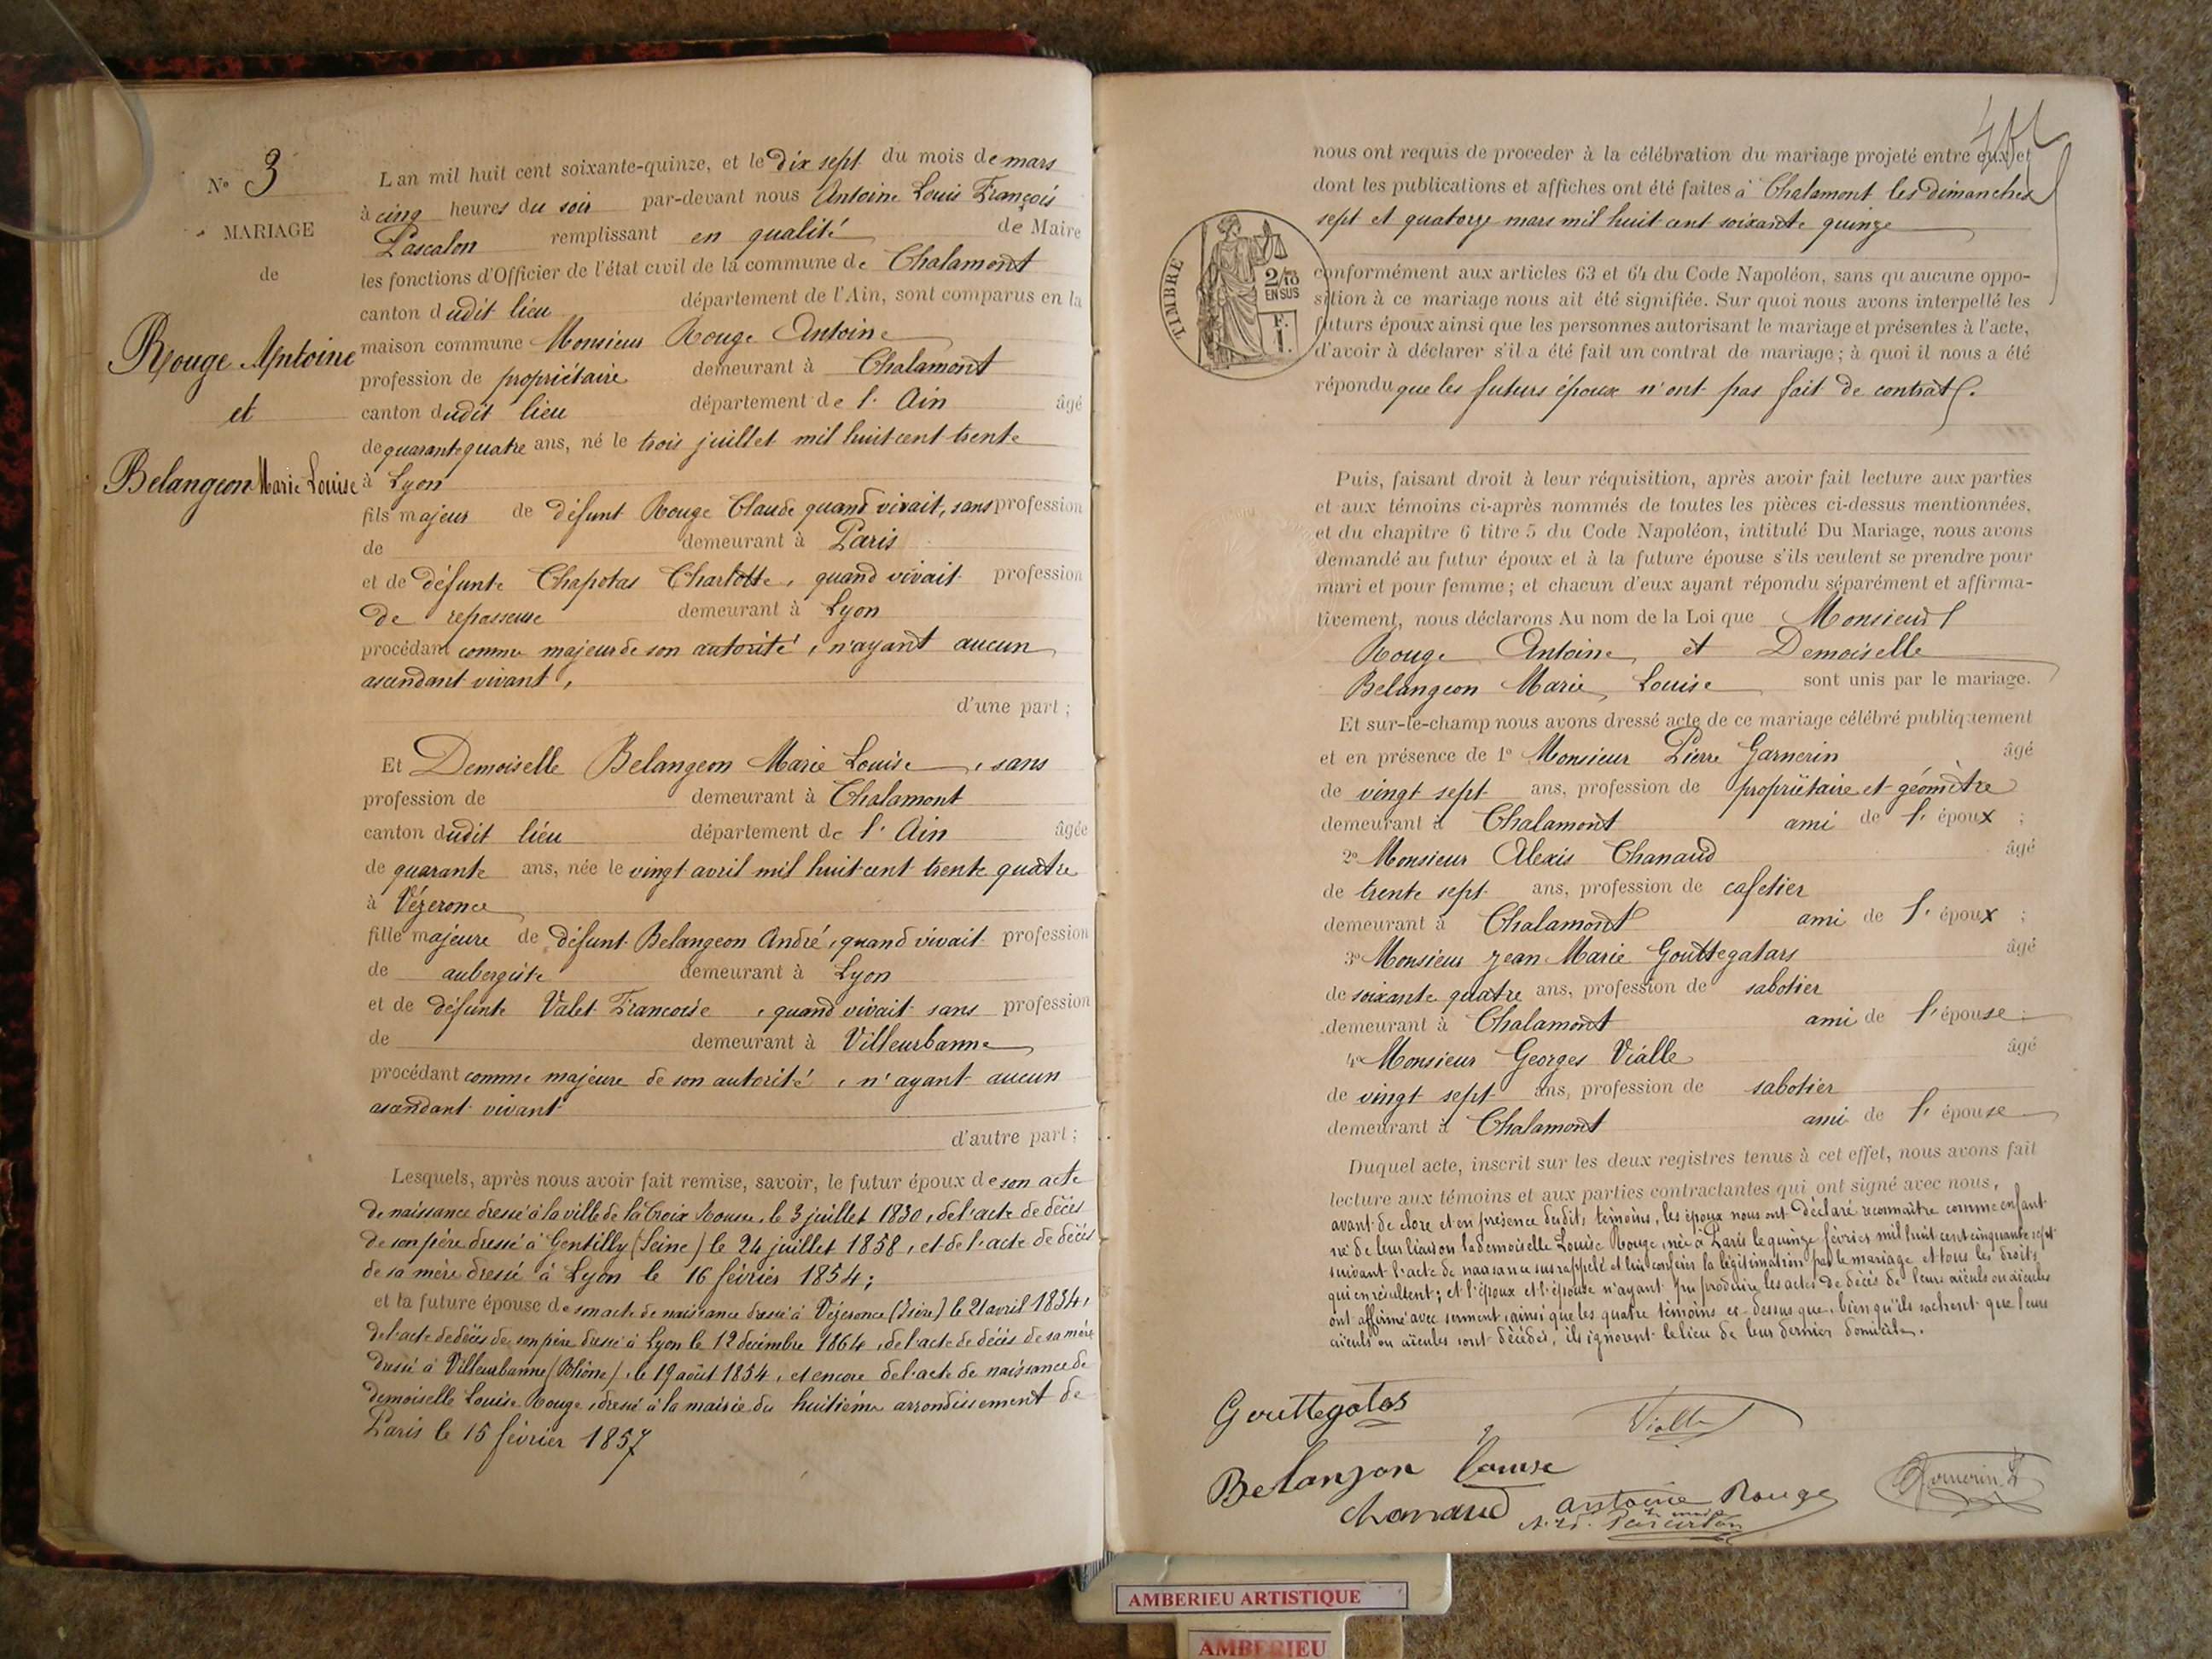 N° 3
MARIAGE
de
Rouge Antoine
et
Belangeon Marie Louise
L'an mil huit cent soixante-quinze, et le dix sept du mois de mars
à cinq heures du soir par-devant nous Antoine Louis François
Pascalon remplissant en qualité de Maire
les fonctions d'Officier de l'état civil de la commune de Chalamont
canton dudit lieu département de l'Ain, sont comparus en la
maison commune Monsieur Rouge Antoine
profession de propriétaire demeurant à Chalamont
canton dudit lieu département de l'Ain âgé
de quarante quatre ans, né le trois juillet mil huit cent trente
à Lyon
fils majeur de défunt Rouge Claude quand vivait, sans profession
de demeurant à Paris
et de défunte Chapotas Charlotte, quand vivait profession
de repasseuse demeurant à Lyon
procédant comme majeur de son autorité, n'ayant aucun
ascendant vivant,
d'une part ;
Et Demoiselle Belangeon Marie Louise, sans
profession de demeurant à Chalamont
canton dudit lieu département de l'Ain âgée
de quarante ans, née le vingt avril mil huit cent trente quatre
à Vézeronce
fille majeure de défunt Belangeon André, quand vivait profession
de aubergiste demeurant à Lyon
et de défunte Valet Francoise, quand vivait sans profession
de demeurant à Villeurbanne
procédant comme majeure de son autorité, n'ayant aucun
ascendant vivant
d'autre part ;
Lesquels, après nous avoir fait remise, savoir, le futur époux de son acte
de naissance dressé à la ville de la Croix Rousse, le 3 juillet 1830, de l'acte de décès
de son père dressé à Gentilly (Seine) le 24 juillet 1858, et de l'acte de décès
de sa mère dressé à Lyon le 16 février 1854 ;
et la future épouse de son acte de naissance dressé à Vézeronce (Isère) le 21 avril 1834,
de l'acte de décès de son père dressé à Lyon le 12 décembre 1864, de l'acte de décès de sa mère
dressé à Villeurbanne (Rhône), le 19 août 1854, et encore de l'acte de naissance de
demoiselle Louise Rouge, dressé à la mairie du huitième arrondissement de
Paris le 15 février 1857
nous ont requis de proceder à la célébration du mariage projeté entre eux et
dont les publications et affiches ont été faites à Chalamont les dimanches
sept et quatorze mars mil huit cent soixante quinze
TIMBRE
2/10
EN SUS
F.
1.
conformément aux articles 63 et 64 du Code Napoléon, sans qu'aucune oppo-
sition à ce mariage nous ait été signifiée. Sur quoi nous avons interpellé les
futurs époux ainsi que les personnes autorisant le mariage et présentes à l'acte,
d'avoir à déclarer s'il a été fait un contrat de mariage ; à quoi il nous a été
répondu que les futurs époux n'ont pas fait de contrat.
Puis, faisant droit à leur réquisition, après avoir fait lecture aux parties
et aux témoins ci-après nommés de toutes les pièces ci-dessus mentionnées,
et du chapitre 6 titre 5 du Code Napoléon, intitulé Du Mariage, nous avons
demandé au futur époux et à la future épouse s'ils veulent se prendre pour
mari et pour femme ; et chacun d'eux ayant répondu séparément et affirma-
tivement, nous déclarons Au nom de la Loi que Monsieur
Rouge Antoine et Demoiselle
Belangeon Marie Louise sont unis par le mariage.
Et sur-le-champ nous avons dressé acte de ce mariage célébré publiquement
et en présence de 1° Monsieur Pierre Garnerin âgé
de vingt sept ans, profession de propriétaire et géomètre
demeurant à Chalamont ami de l'époux ;
2° Monsieur Alexis Chanaud âgé
de trente sept ans, profession de cafetier
demeurant à Chalamont ami de l'époux ;
3° Monsieur Jean Marie Gouttegatars âgé
de soixante quatre ans, profession de sabotier
demeurant à Chalamont ami de l'épouse ;
4° Monsieur Georges Vialle âgé
de vingt sept ans, profession de sabotier
demeurant à Chalamont ami de l'épouse
Duquel acte, inscrit sur les deux registres tenus à cet effet, nous avons fait
lecture aux témoins et aux parties contractantes qui ont signé avec nous,
avant de clore et en présence desdits témoins, les époux nous ont déclaré reconnaître comme enfant
né de leur liaison la demoiselle Louise Rouge, née à Paris le quinze février mil huit cent cinquante sept
suivant l'acte de naissance sus rappelé et lui conférer la légitimation par le mariage et tous les droits
qui en résultent ; et l'époux et l'épouse n'ayant pu produire les actes de décès de leurs aïeuls ou aïeules
ont affirmé avec serment, ainsi que les quatre témoins ci-dessus que, bien qu'ils sachent que leurs
aïeuls ou aïeules sont décédés, ils ignorent le lieu de leur dernier domicile.
Gouttegatas
Vialle
Belanjon Louise
Chanaud
Antoine Rouge
Garnerin P
AMBERIEU ARTISTIQUE
AMBERIEU